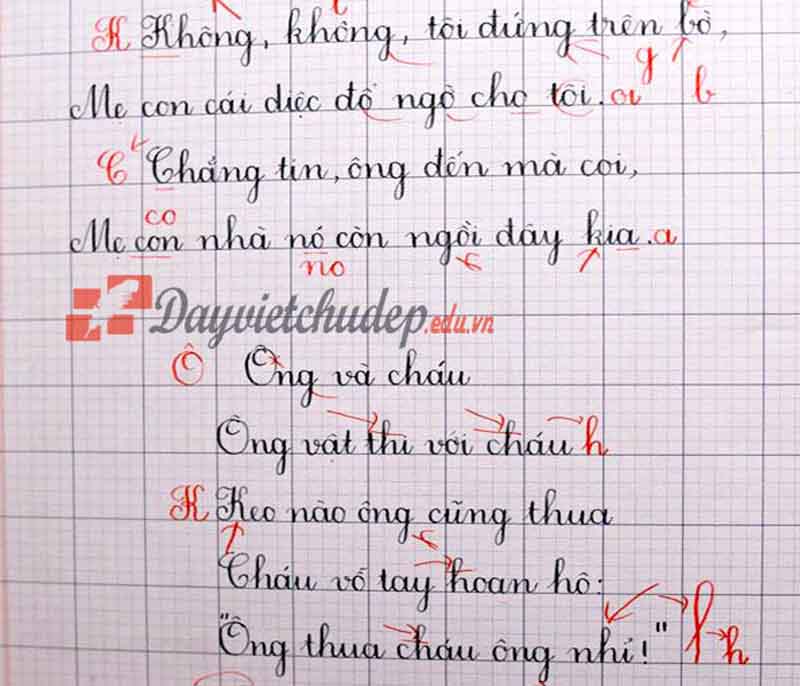 K Không, không, tôi đứng trên bờ,
g b
Mẹ con cái diệc đổ ngờ cho tôi. oi
C Chẳng tin, ông đến mà coi,
co
Mẹ con nhà nó còn ngồi đây kia. a
no
Dayvietchudep.edu.vn
Ô Ông và cháu
Ông vật thi với cháu h
K Keo nào ông cũng thua
Cháu vỗ tay hoan hô:
"Ông thua cháu ông nhỉ!" h